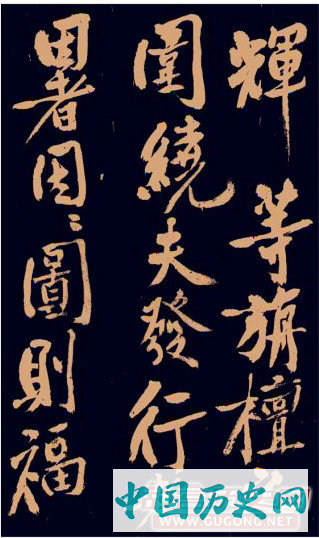 輝等旃檀
圍繞夫發行
署因〻圓則福
中国历史网
WWW.GUGONG.NET